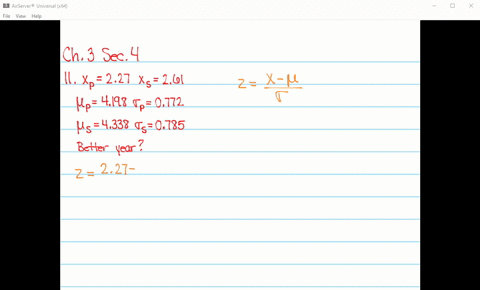 AirServer® Universal (x64)
File View Help
Ch. 3 Sec. 4
11. xₚ = 2.27 xₛ = 2.61
z = x - μ / σ
μₚ = 4.198 σₚ = 0.772
μₛ = 4.338 σₛ = 0.785
Better year?
z = 2.27-